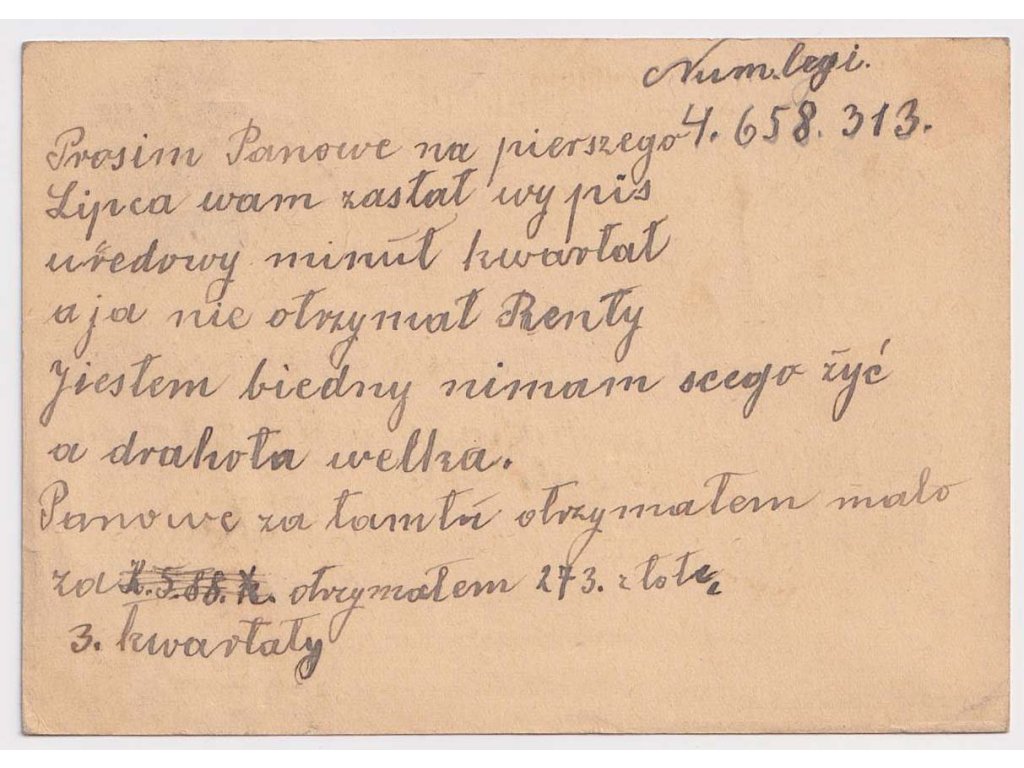 Num. legi.
4. 658. 313.
Prosim Panowe na pierszego
Lipca wam zasłał wypis
uředowy minuł kwartał
a ja nie otrzymał Renty
Jiestem biedny nimam scego żyć
a drahota welka.
Panowe za tamtú otrzymałem malo
za otrzymałem 273. złote
3. kwartały